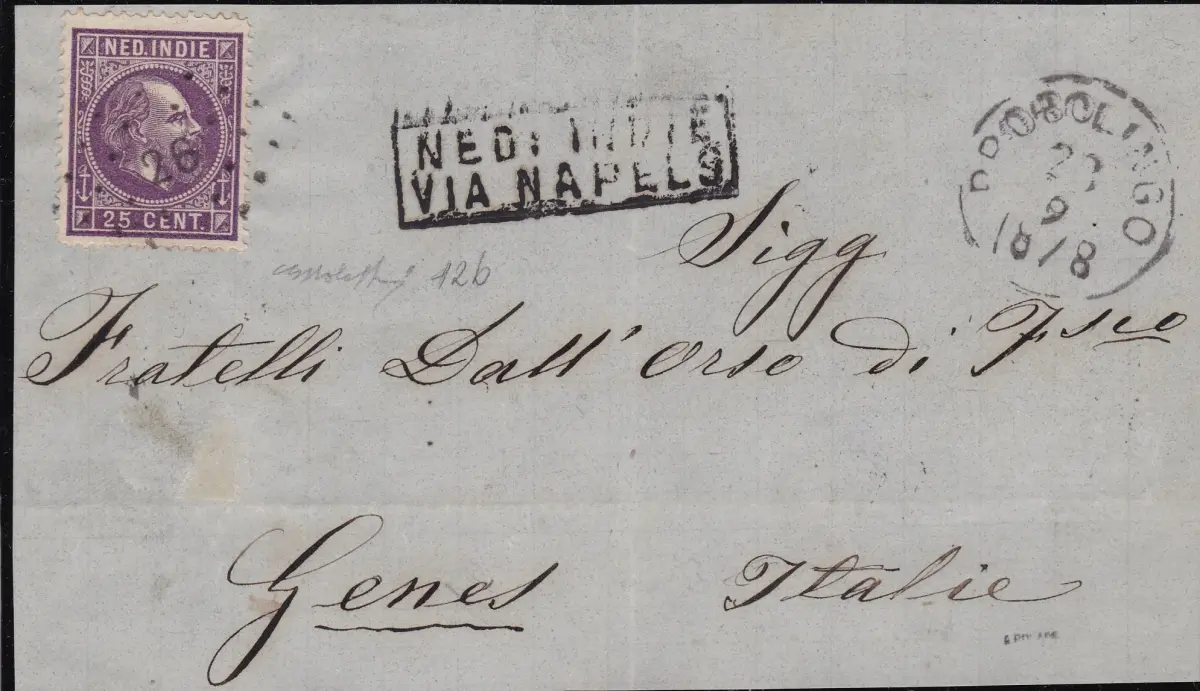 NED. INDIE
26
25 CENT.
NED: INDIE
VIA NAPELS
PROBOLINGO
9
1878
12b
Sigg
Fratelli Dall' Orso di Fsco
Genes Italie